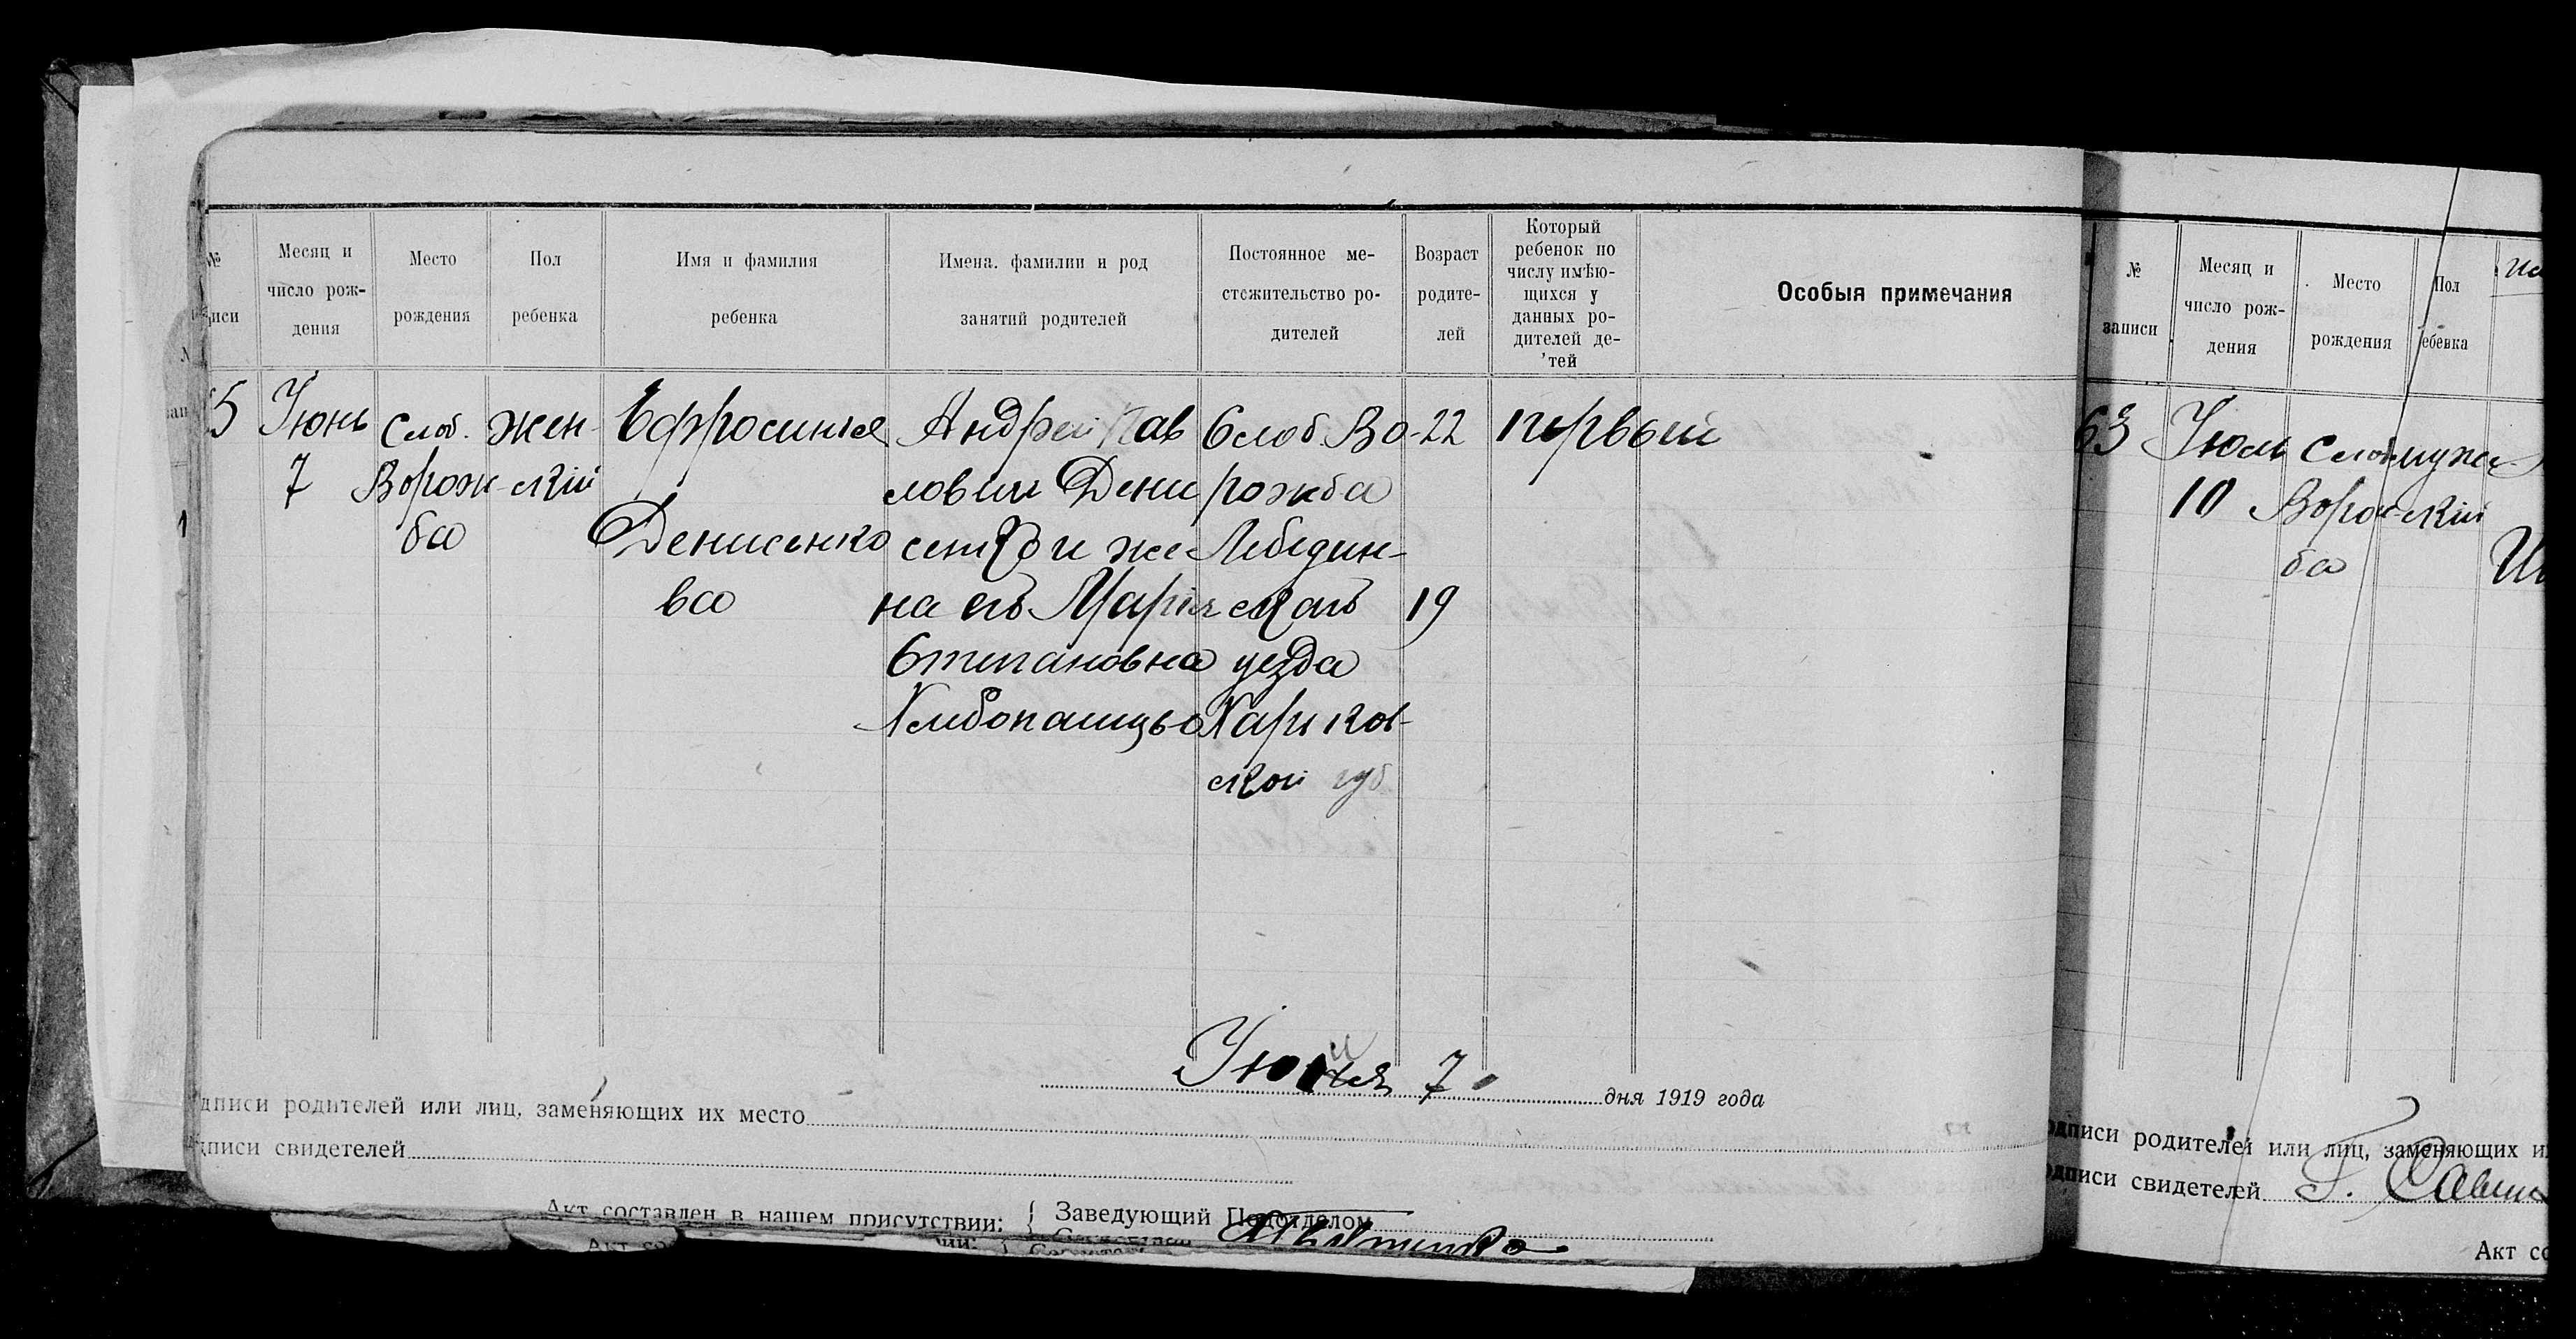 №
иси
Месяц и
число рож-
дения
Место
рождения
Пол
ребенка
Имя и фамилия
ребенка
Имена. фамилии и род
занятий родителей
Постоянное ме-
стожительство ро-
дителей
Возраст
родите-
лей
Который
ребенок по
числу имѣю-
щихся у
данных ро-
дителей де-
тей
Особыя примечания
5
Июнь
7
Слоб.
Ворож-
ба
Жен-
ский
Ефросинья
Денисенко
ва
Андрей Пав
лович Дени
сенко и же
на его Мария
Степановна
Слоб. Во-
рожба
Лебедин-
скаго
уезда
Харьков-
ской губ
22
19
первый
7
дня 1919 года
дписи родителей или лиц, заменяющих их место
дписи свидетелей
Акт составлен в нашем присутствии:
Заведующий Подотделом
№
записи
Месяц и
число рож-
дения
Место
рождения
Пол
ебенка
63
Июль
10
Слоб
Ворож-
ба
муж
ский
одписи родителей или лиц, заменяющих и
одписи свидетелей
Акт со